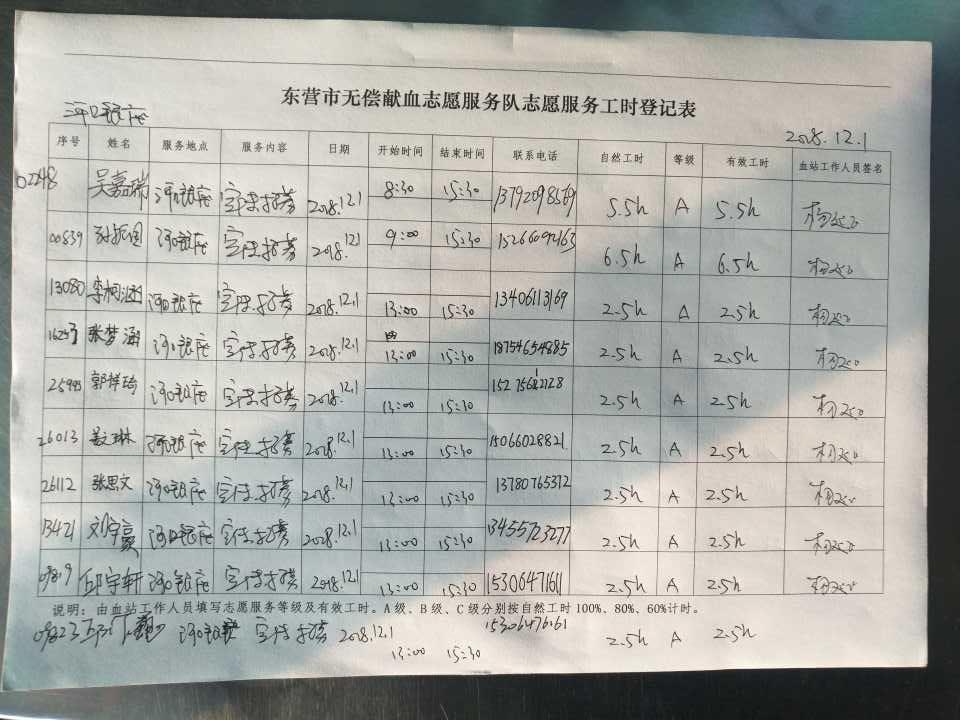 东营市无偿献血志愿服务队志愿服务工时登记表
河口银座
2018.12.1
序号 姓名 服务地点 服务内容 日期 开始时间 结束时间 联系电话 自然工时 等级 有效工时 血站工作人员签名
02248 吴嘉瑞 河口银座 宣传招募 2018.12.1 8:30 15:30 13792098569 5.5h A 5.5h
00839 河口银座 宣传招募 2018.12.1 9:00 15:30 15266092163 6.5h A 6.5h
13080 河口银座 宣传招募 2018.12.1 13:00 15:30 13406113169 2.5h A 2.5h
张梦涵 河口银座 宣传招募 2018.12.1 13:00 15:30 18754654885 2.5h A 2.5h
郭祥琦 河口银座 宣传招募 2018.12.1 13:00 15:30 2.5h A 2.5h
26013 河口银座 宣传招募 2018.12.1 13:00 15:30 15066028821 2.5h A 2.5h
26112 张思文 河口银座 宣传招募 2018.12.1 13:00 15:30 13780765312 2.5h A 2.5h
13421 刘宇豪 河口银座 宣传招募 2018.12.1 13:00 15:30 13455723277 2.5h A 2.5h
邱宇轩 河口银座 宣传招募 2018.12.1 13:00 15:30 15306471611 2.5h A 2.5h
说明：由血站工作人员填写志愿服务等级及有效工时。A级、B级、C级分别按自然工时100%、80%、60%计时。
河口银座 宣传招募 2018.12.1 13:00 15:30 15306476161 2.5h A 2.5h